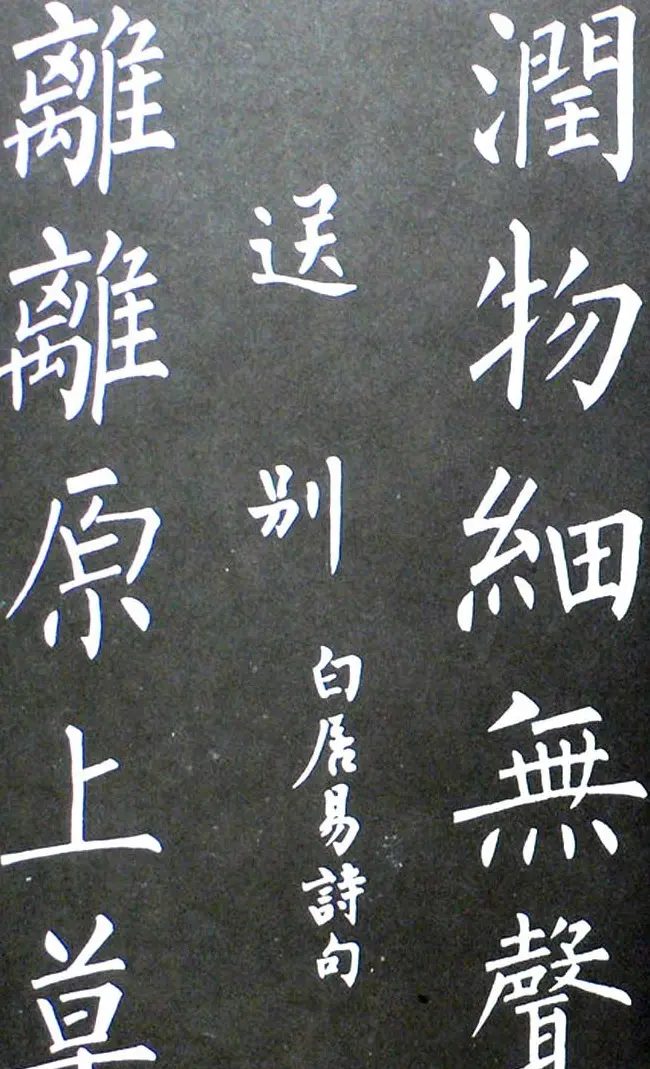 潤物細無聲
送别
白居易詩句
離離原上草